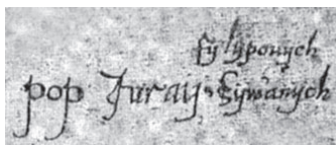 fylypouych
pop Juraij Sywanych